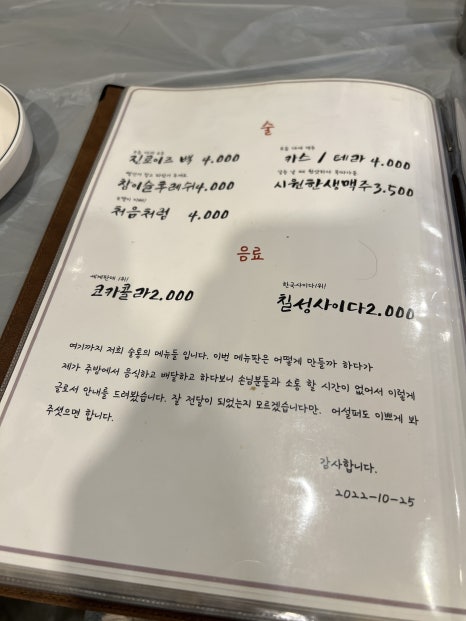 술
진로이즈 백 4.000
카스 / 테라 4.000
참이슬후레쉬 4.000
시원한생맥주 3.500
처음처럼 4.000
음료
세계판매 1위!
코카콜라 2.000
한국사이다1위!
칠성사이다 2.000
여기까지 저희 술통의 메뉴들 입니다. 이번 메뉴판은 어떻게 만들까 하다가
제가 주방에서 음식하고 배달하고 하다보니 손님분들과 소통 할 시간이 없어서 이렇게
글로서 안내를 드려봤습니다. 잘 전달이 되었는지 모르겠습니다만. 어설퍼도 이쁘게 봐
주셧으면 합니다.
감사합니다.
2022-10-25